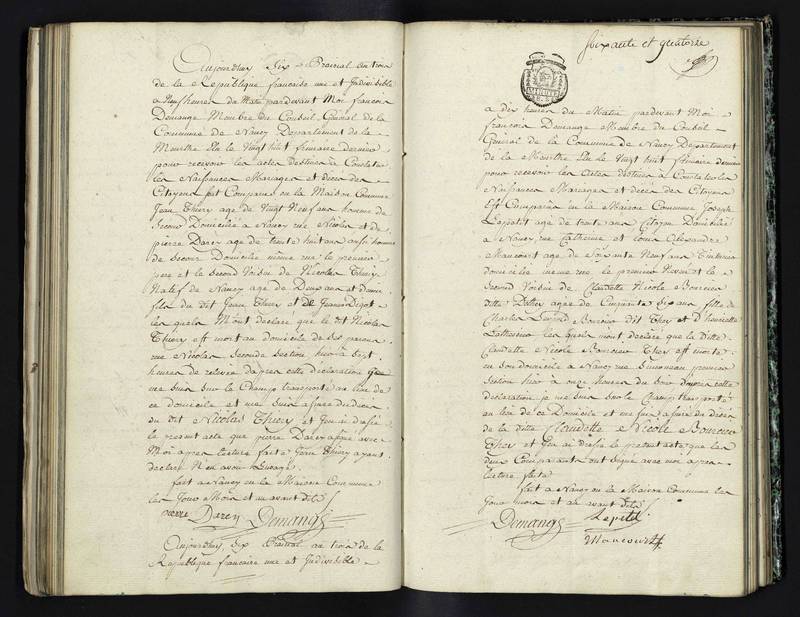 Aujourdhuy Six Prairial an trois
de la Republique francaise une et Indivisible
a Neuf heures du Matin pardevant Moi francois
Demange Membre du Conseil General de la
Commune de Nancy Departement de la
Meurthe Elu le Vingt huit frimaire dernier
pour recevoir les actes destinés a Constater
les Naissances Mariages et décés des
Citoyens Est Comparu en la Maison Commune
Jean Thiery age de Vingt Neuf ans homme de
secour Domicilié a Nancy rue Nicolas et de
pierre Darcy age de trente huit ans aussi homme
de secour Domicilié même rue le premier
pere et le second Voisin de Nicolas Thiery
Natif de Nancy age de Deux ans et demi
fils du dit Jean Thiery et de Jeanne Digot
les quels M'ont declaré que le dit Nicolas
Thiery est mort au domicile de ses parens
rue Nicolas Seconde Section hier à Sept
heures de relevée Dapres cette déclaration
me suis sur le Champ transporté au lieu de
ce domicile et me suis assuré du décés
du dit Nicolas Thiery et J'en ai dressé
le present acte que pierre Darcy a signé avec
Moi apres lecture faite Jean Thiery ayant
declaré N'en avoir L'usage
fait a Nancy en la Maison Commune
les Jour Mois et an avant dits
pierre Darcy Demange
Aujourdhuy Six Prairial an trois de la
Republique francaise une et Indivisible
soixante et quatorze
a dix heures du Matin pardevant Moi
francois Demange Membre du Conseil
General de la Commune de Nancy Departement
de la Meurthe Elu le Vingt huit frimaire dernier
pour recevoir les Actes destinés a Constater les
Naissances Mariages et décés des Citoyens
Est Comparu en la Maison Commune Joseph
Lepetit agé de trente ans Citoyen Domicilié
a Nancy rue Catherine et Alexandre
Maucourt age de Soixante Neuf ans
domicilié meme rue le premier Neveu et le
Second Voisin de Claudette Nicole
ditte Thery agée de Cinquante Six ans fille de
Charles dit Thery et D'henriette
les quels mont declaré que la Ditte
Claudette Nicole Thery est morte
en son domicile a Nancy rue premiere
Section hier a onze heures du Soir Dapres cette
Declaration je me suis sur le Champ transporté
au lieu de ce Domicile et me suis assuré du décés
de la ditte Claudette Nicole
Thery et J'en ai dressé le present acte que les
deux Comparants ont Signé avec moi apres
lecture faite
fait a Nancy en la Maison Commune les
Jour mois et an avant dits
Demange Lepetit
Maucourt